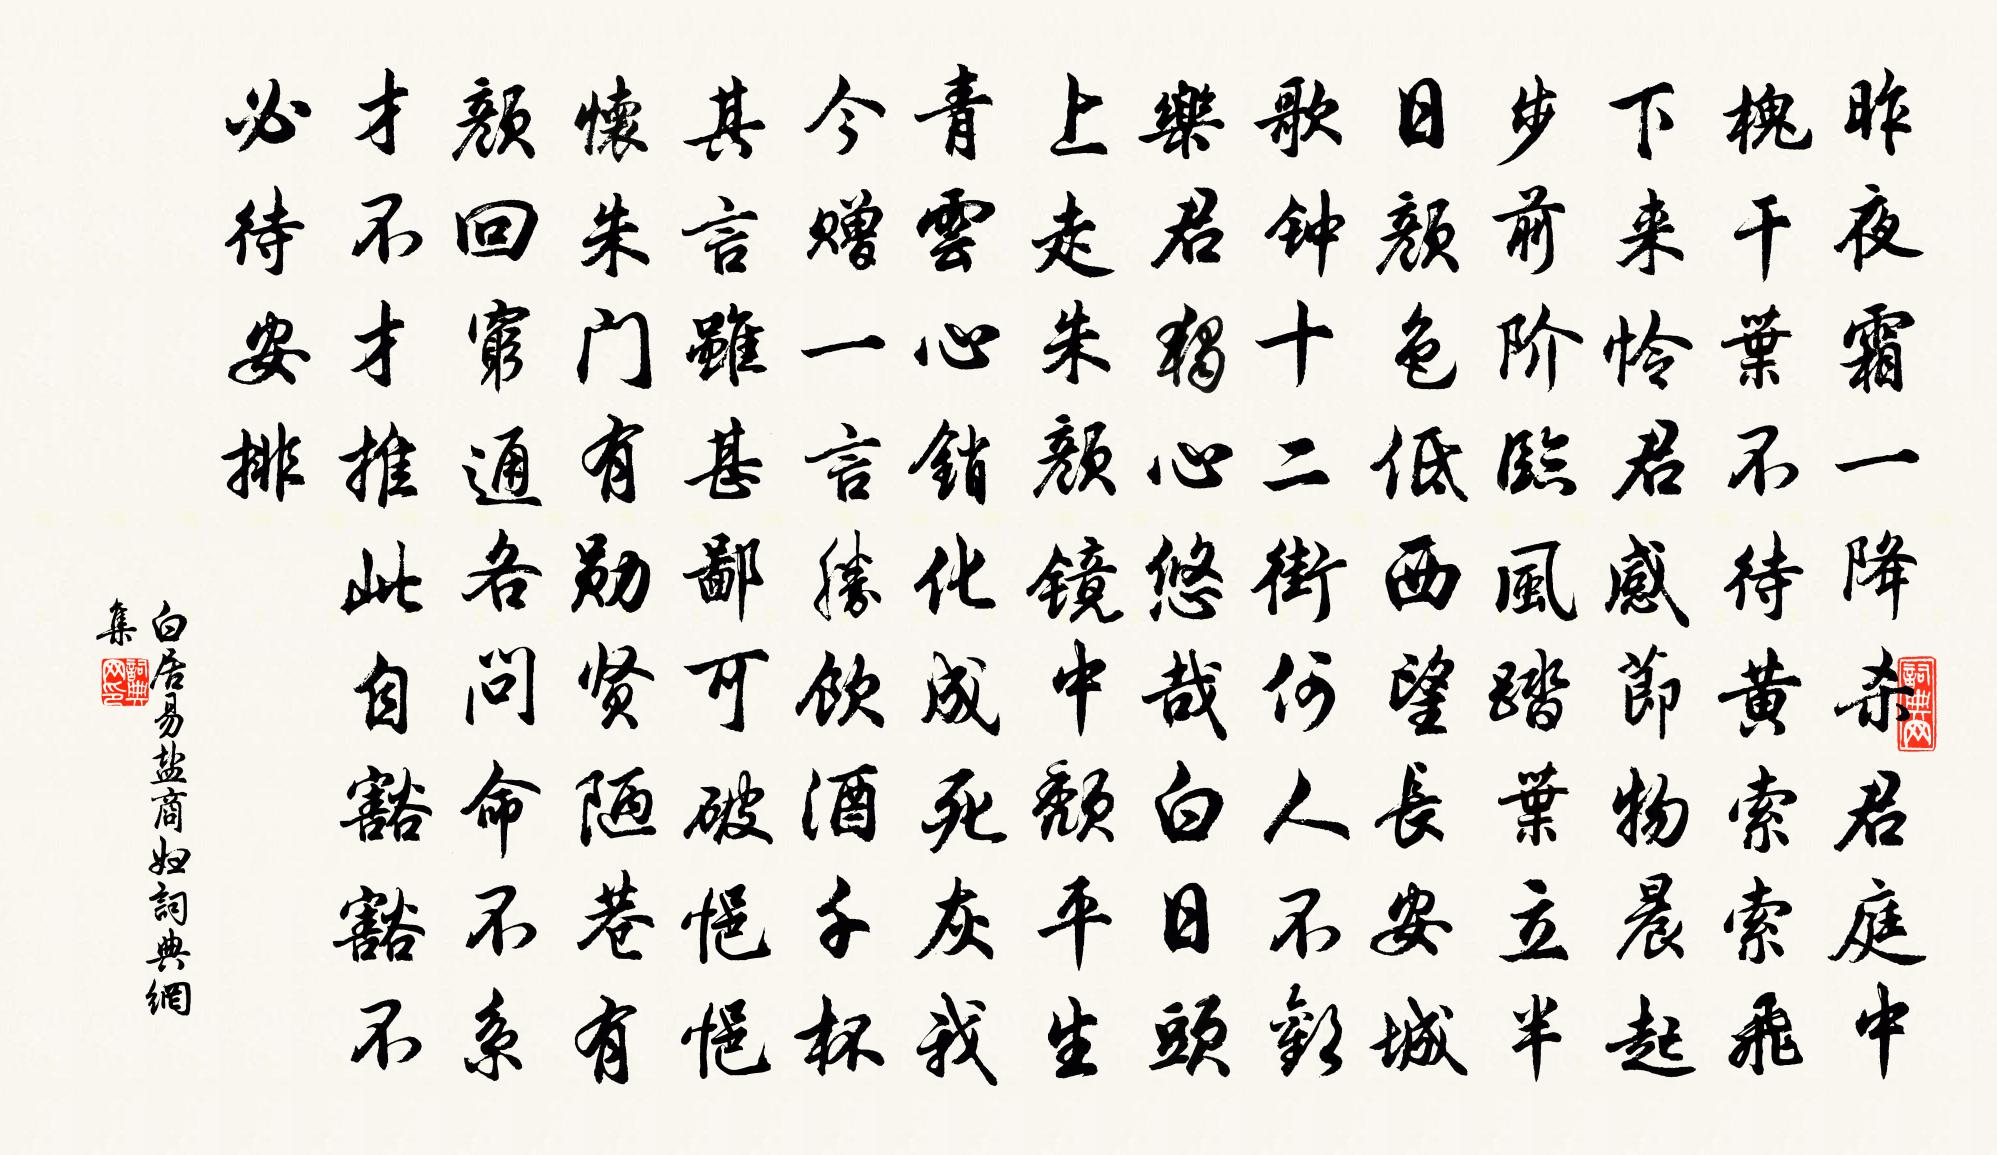 昨夜霜一降杀君庭中
槐干葉不待黄索索飛
下来怜君感節物晨起
步前阶臨風踏葉立半
日顔色低西望長安城
歌钟十二街何人不歡
樂君獨心悠哉白日頭
上走朱顔镜中頽平生
青雲心銷化成死灰我
今赠一言勝飲酒千杯
其言雖甚鄙可破悒悒
懷朱门有勋贤陋巷有
顔回窮通各问命不系
才不才推此自豁豁不
必待安排
白居易盐商妇詞典網
集
詞典网
詞典网